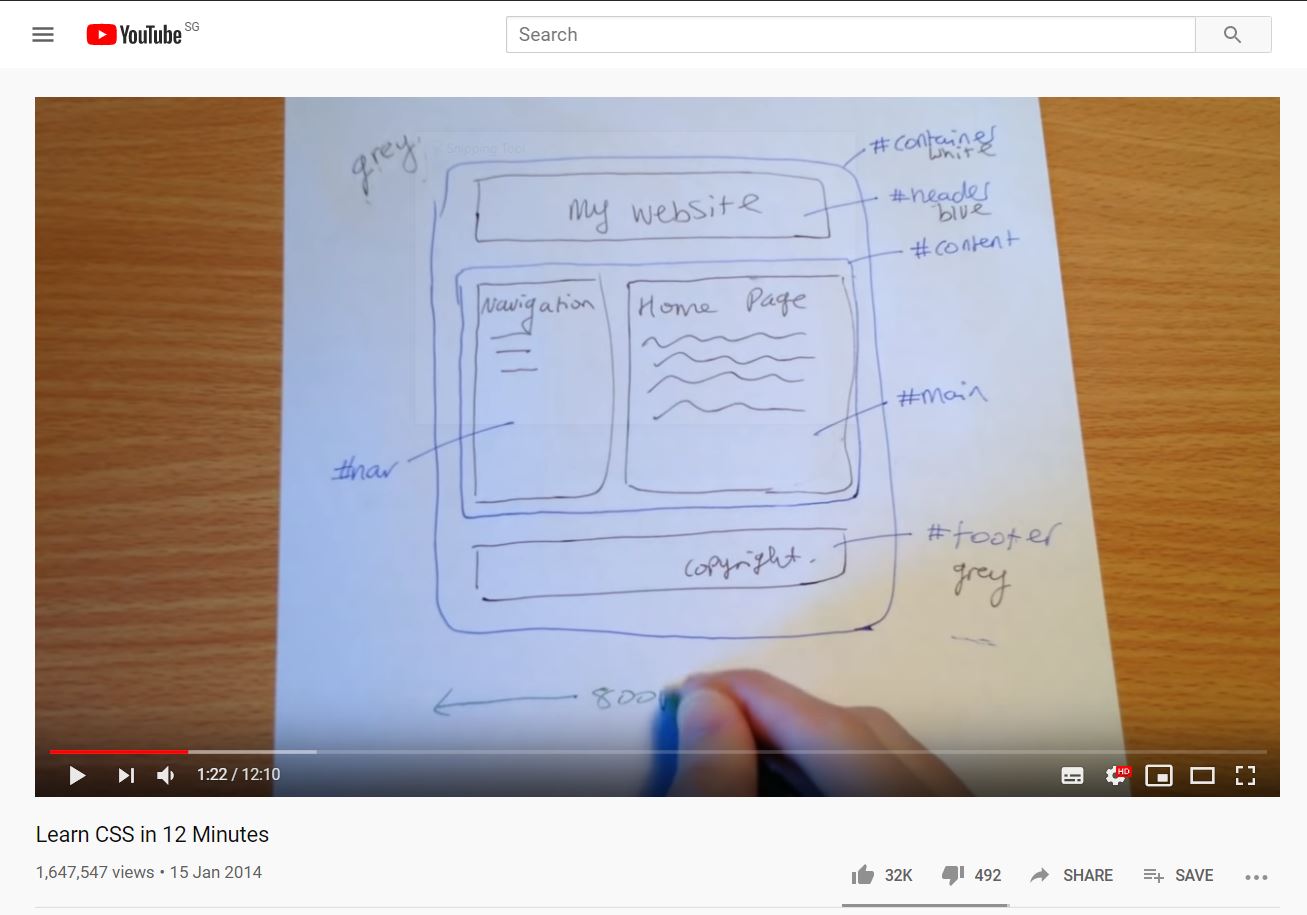 YouTube SG
Search
grey
Snipping Tool
#container
white
My website
#header
blue
#content
Navigation
Home Page
#main
#nav
#footer
copyright.
grey
800
1:22 / 12:10
HD
Learn CSS in 12 Minutes
1,647,547 views • 15 Jan 2014
32K
492
SHARE
SAVE